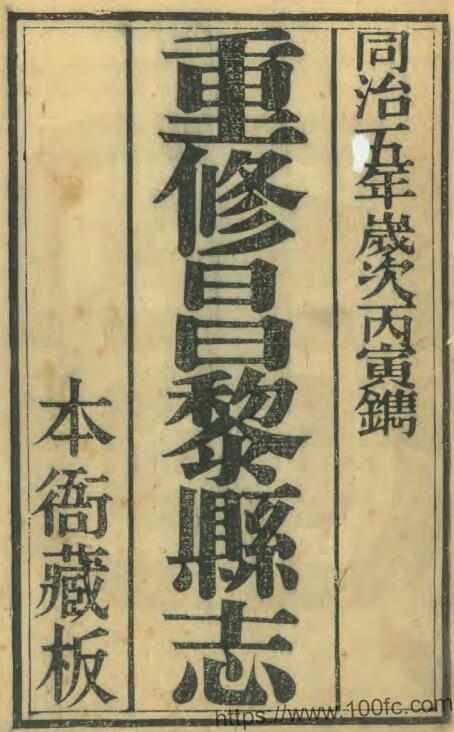 同治五年歲次丙寅鐫
重修昌黎縣志
本衙藏板
https://www.100fc.com